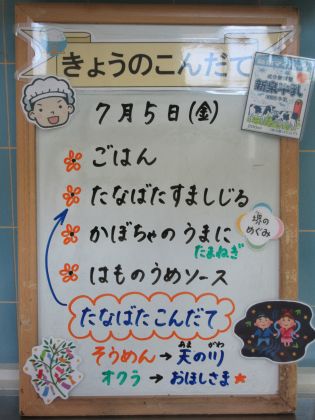 きょうのこんだて
7月5日(金)
ごはん
たなばたすましじる
かぼちゃのうまに
たまねぎ
堺の
めぐみ
はものうめソース
たなばたこんだて
そうめん→天の川
あま がわ
オクラ→おほしさま